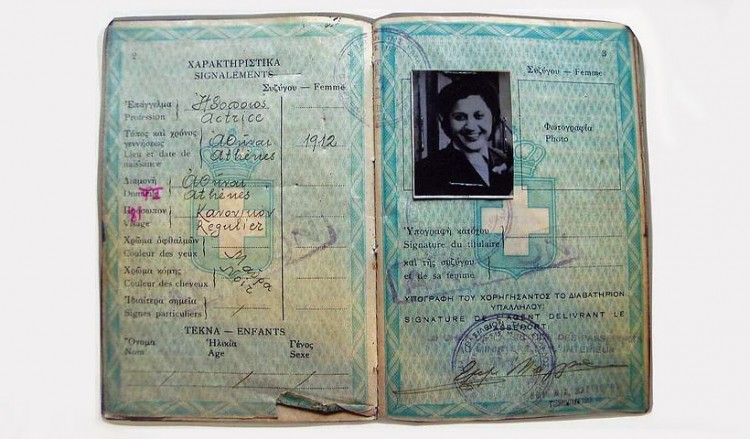 2
ΧΑΡΑΚΤΗΡΙΣΤΙΚΑ
SIGNALEMENTS
Συζύγου — Femme
Ἐπάγγελμα Ἠθοποιός
Profession Actrice
Τόπος καὶ χρόνος γεννήσεως Ἀθῆναι 1912
Lieu et date de naissance Athènes
Διαμονὴ Ἀθῆναι
Athènes
Πρόσωπον Κανονικόν
Visage Régulier
Χρῶμα ὀφθαλμῶν Μαῦρα
Couleur des yeux Noir
Χρῶμα κόμης
Couleur des cheveux
Ἰδιαίτερα σημεῖα
Signes particuliers
ΤΕΚΝΑ — ENFANTS
Ὄνομα Ἡλικία Γένος
Nom Age Sexe
3
Συζύγου — Femme
Φωτογραφία
Photo
Ὑπογραφὴ κατόχου
Signature du titulaire
καὶ τῆς συζύγου
et de sa femme
ΥΠΟΓΡΑΦΗ ΤΟΥ ΧΟΡΗΓΗΣΑΝΤΟΣ ΤΟ ΔΙΑΒΑΤΗΡΙΟΝ
ΥΠΑΛΛΗΛΟΥ:
SIGNATURE DE L'AGENT DELIVRANT LE
PASSEPORT: